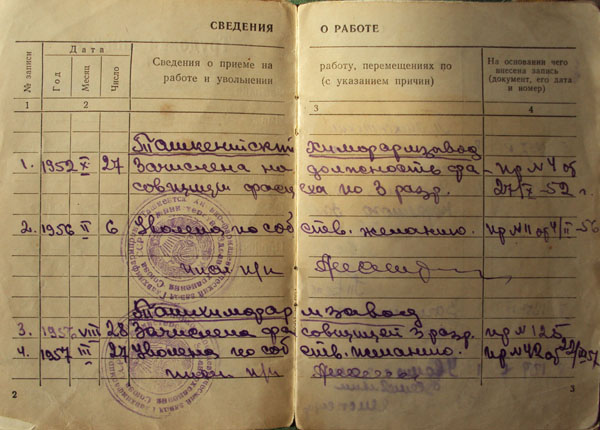 СВЕДЕНИЯ О РАБОТЕ
№ записи
Дата
Год
Месяц
Число
Сведения о приеме на работу, перемещениях по
работе и увольнении (с указанием причин)
На основании чего
внесена запись
(документ, его дата
и номер)
1 2 3 4
Ташкентский химфармзавод
1. 1952 X 27 Зачислена на должность фа- пр № 4 об
совщицы фасц ха по 3 разр. 27/X-52 г.
2. 1956 II 6 Уволена по соб ств. желанию. пр № 11 от 4/II-56
Ташхимфар мзавод
3. 1956 VIII 28 Зачислена фа совщицей 3 разр. пр №
4. 1957 III 27 Уволена по соб ств. желанию. пр № 42 об
2 3